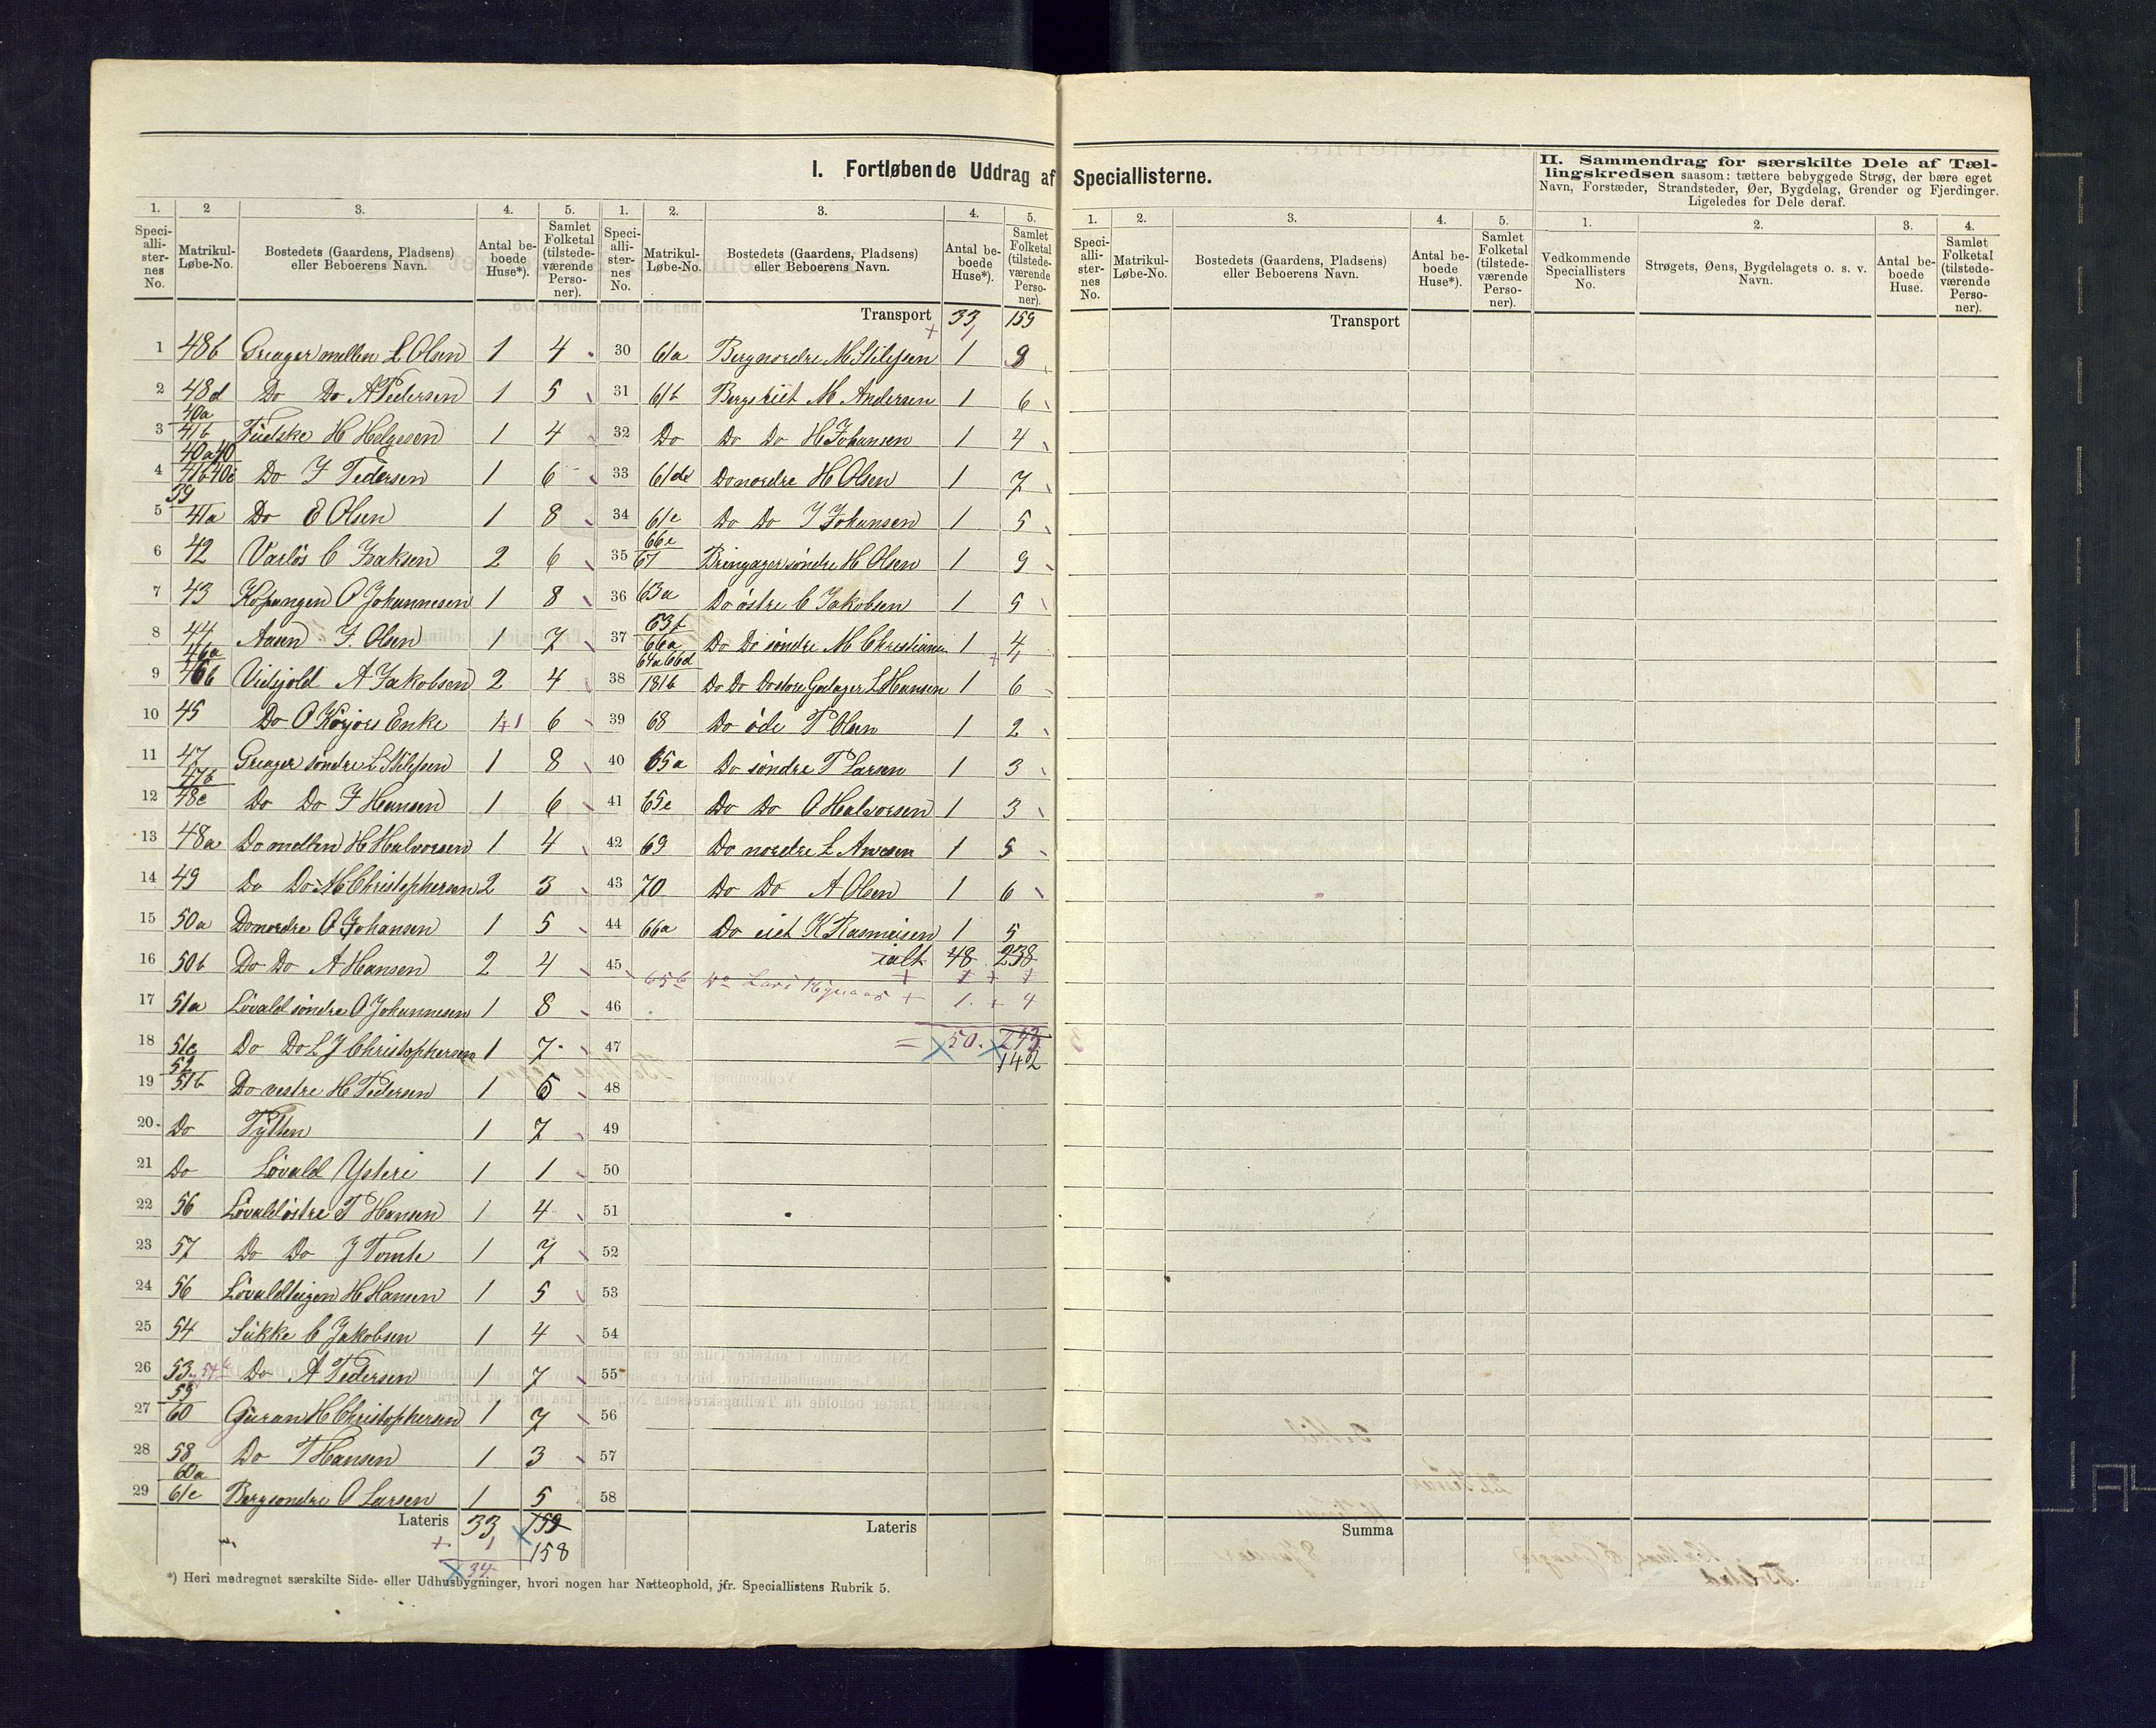 I. Fortløbende Uddrag af Speciallisterne.
II. Sammendrag for særskilte Dele af Tællingskredsen saasom: tættere bebyggede Strøg, der bære eget
Navn, Forstæder, Strandsteder, Øer, Bygdelag, Grender og Fjerdinger.
Ligeledes for Dele deraf.
1. 2 3. 4. 5. 1. 2. 3. 4. 5.
Speciallisternes No. Matrikul-Løbe-No. Bostedets (Gaardens, Pladsens) eller Beboerens Navn. Antal beboede Huse*). Samlet Folketal (tilstedeværende Personer).
Speciallisternes No. Matrikul-Løbe-No. Bostedets (Gaardens, Pladsens) eller Beboerens Navn. Antal beboede Huse*). Samlet Folketal (tilstedeværende Personer).
1 48b Greager mellen L Olsen 1 4
2 48d Do Do A Pedersen 1 5
3 40a 41b H Helgesen 1 4
4 Do J Pedersen 1 6
5 39 41a Do E Olsen 1 8
6 42 Varlös C Isaksen 2 6
7 43 Kopangen O Johannesen 1 8
8 44 Aasen J. Olsen 1 7
9 46a 46b A Jakobsen 2 4
10 45 Do O Enke 6
11 47 Greager söndre L Nilsen 1 8
12 47b 48c Do Do J Hansen 1 6
13 48a Do mellen H Halvorsen 1 4
14 49 Do Do M Christophersen 2 3
15 50a Do nordre O Johansen 1 5
16 50b Do Do A Hansen 2 4
17 51a Lövald söndre O Johannesen 1 8
18 51c Do Do L J Christophersen 1 7
19 52 51b Do vestre H Pedersen 1 6
20 Do Tytten 1 7
21 Do Lövald Ystere 1 1
22 56 Lövald östre P Hansen 1 4
23 57 Do Do J Tomte 1 7
24 56 Lövaldteigen H Hansen 1 5
25 54 Sukke C Jakobsen 1 4
26 53 54b Do A Pedersen 1 7
27 59 60 Guran H Christophersen 1 7
28 58 Do T Hansen 1 3
29 60a 61c Berg söndre O Larsen 1 5
Lateris 33 159
+ 1 158
34
Transport 33 159
+ 1
30 61a Berg nordre M Nilsen 1 8
31 61b Bergseiet M Andersen 1 6
32 Do Do Do H Johansen 1 4
33 61d Do nordre H Olsen 1 7
34 61e Do Do J Johansen 1 5
35 66c 67 Bringager söndre H Olsen 1 9
36 63a Do östre C Jakobsen 1 5
37 63f 66a Do Do söndre M Christians 1 4
38 64a 66d 181b Do Do Do store L Hansen 1 6
39 68 Do öde P Olsen 1 2
40 65a Do söndre P Larsen 1 3
41 65c Do Do O Halvorsen 1 3
42 69 Do nordre L Anesen 1 5
43 70 Do Do A Olsen 1 6
44 66a Do eiet K Rasmusen 1 5
45 ialt 48 238
+ 1 + 1
46 65b Do Lars + 1. + 4
47 = 50. 243
142
48
49
50
51
52
53
54
55
56
57
58
Lateris
*) Heri medregnet særskilte Side- eller Udhusbygninger, hvori nogen har Natteophold, jfr. Speciallistens Rubrik 5.
1. 2. 3. 4. 5. 1. 2. 3. 4.
Speciallisternes No. Matrikul-Løbe-No. Bostedets (Gaardens, Pladsens) eller Beboerens Navn. Antal beboede Huse*). Samlet Folketal (tilstedeværende Personer).
Vedkommende Speciallisters No. Strøgets, Øens, Bygdelagets o. s. v. Navn. Antal beboede Huse. Samlet Folketal (tilstedeværende Personer).
Transport
Summa